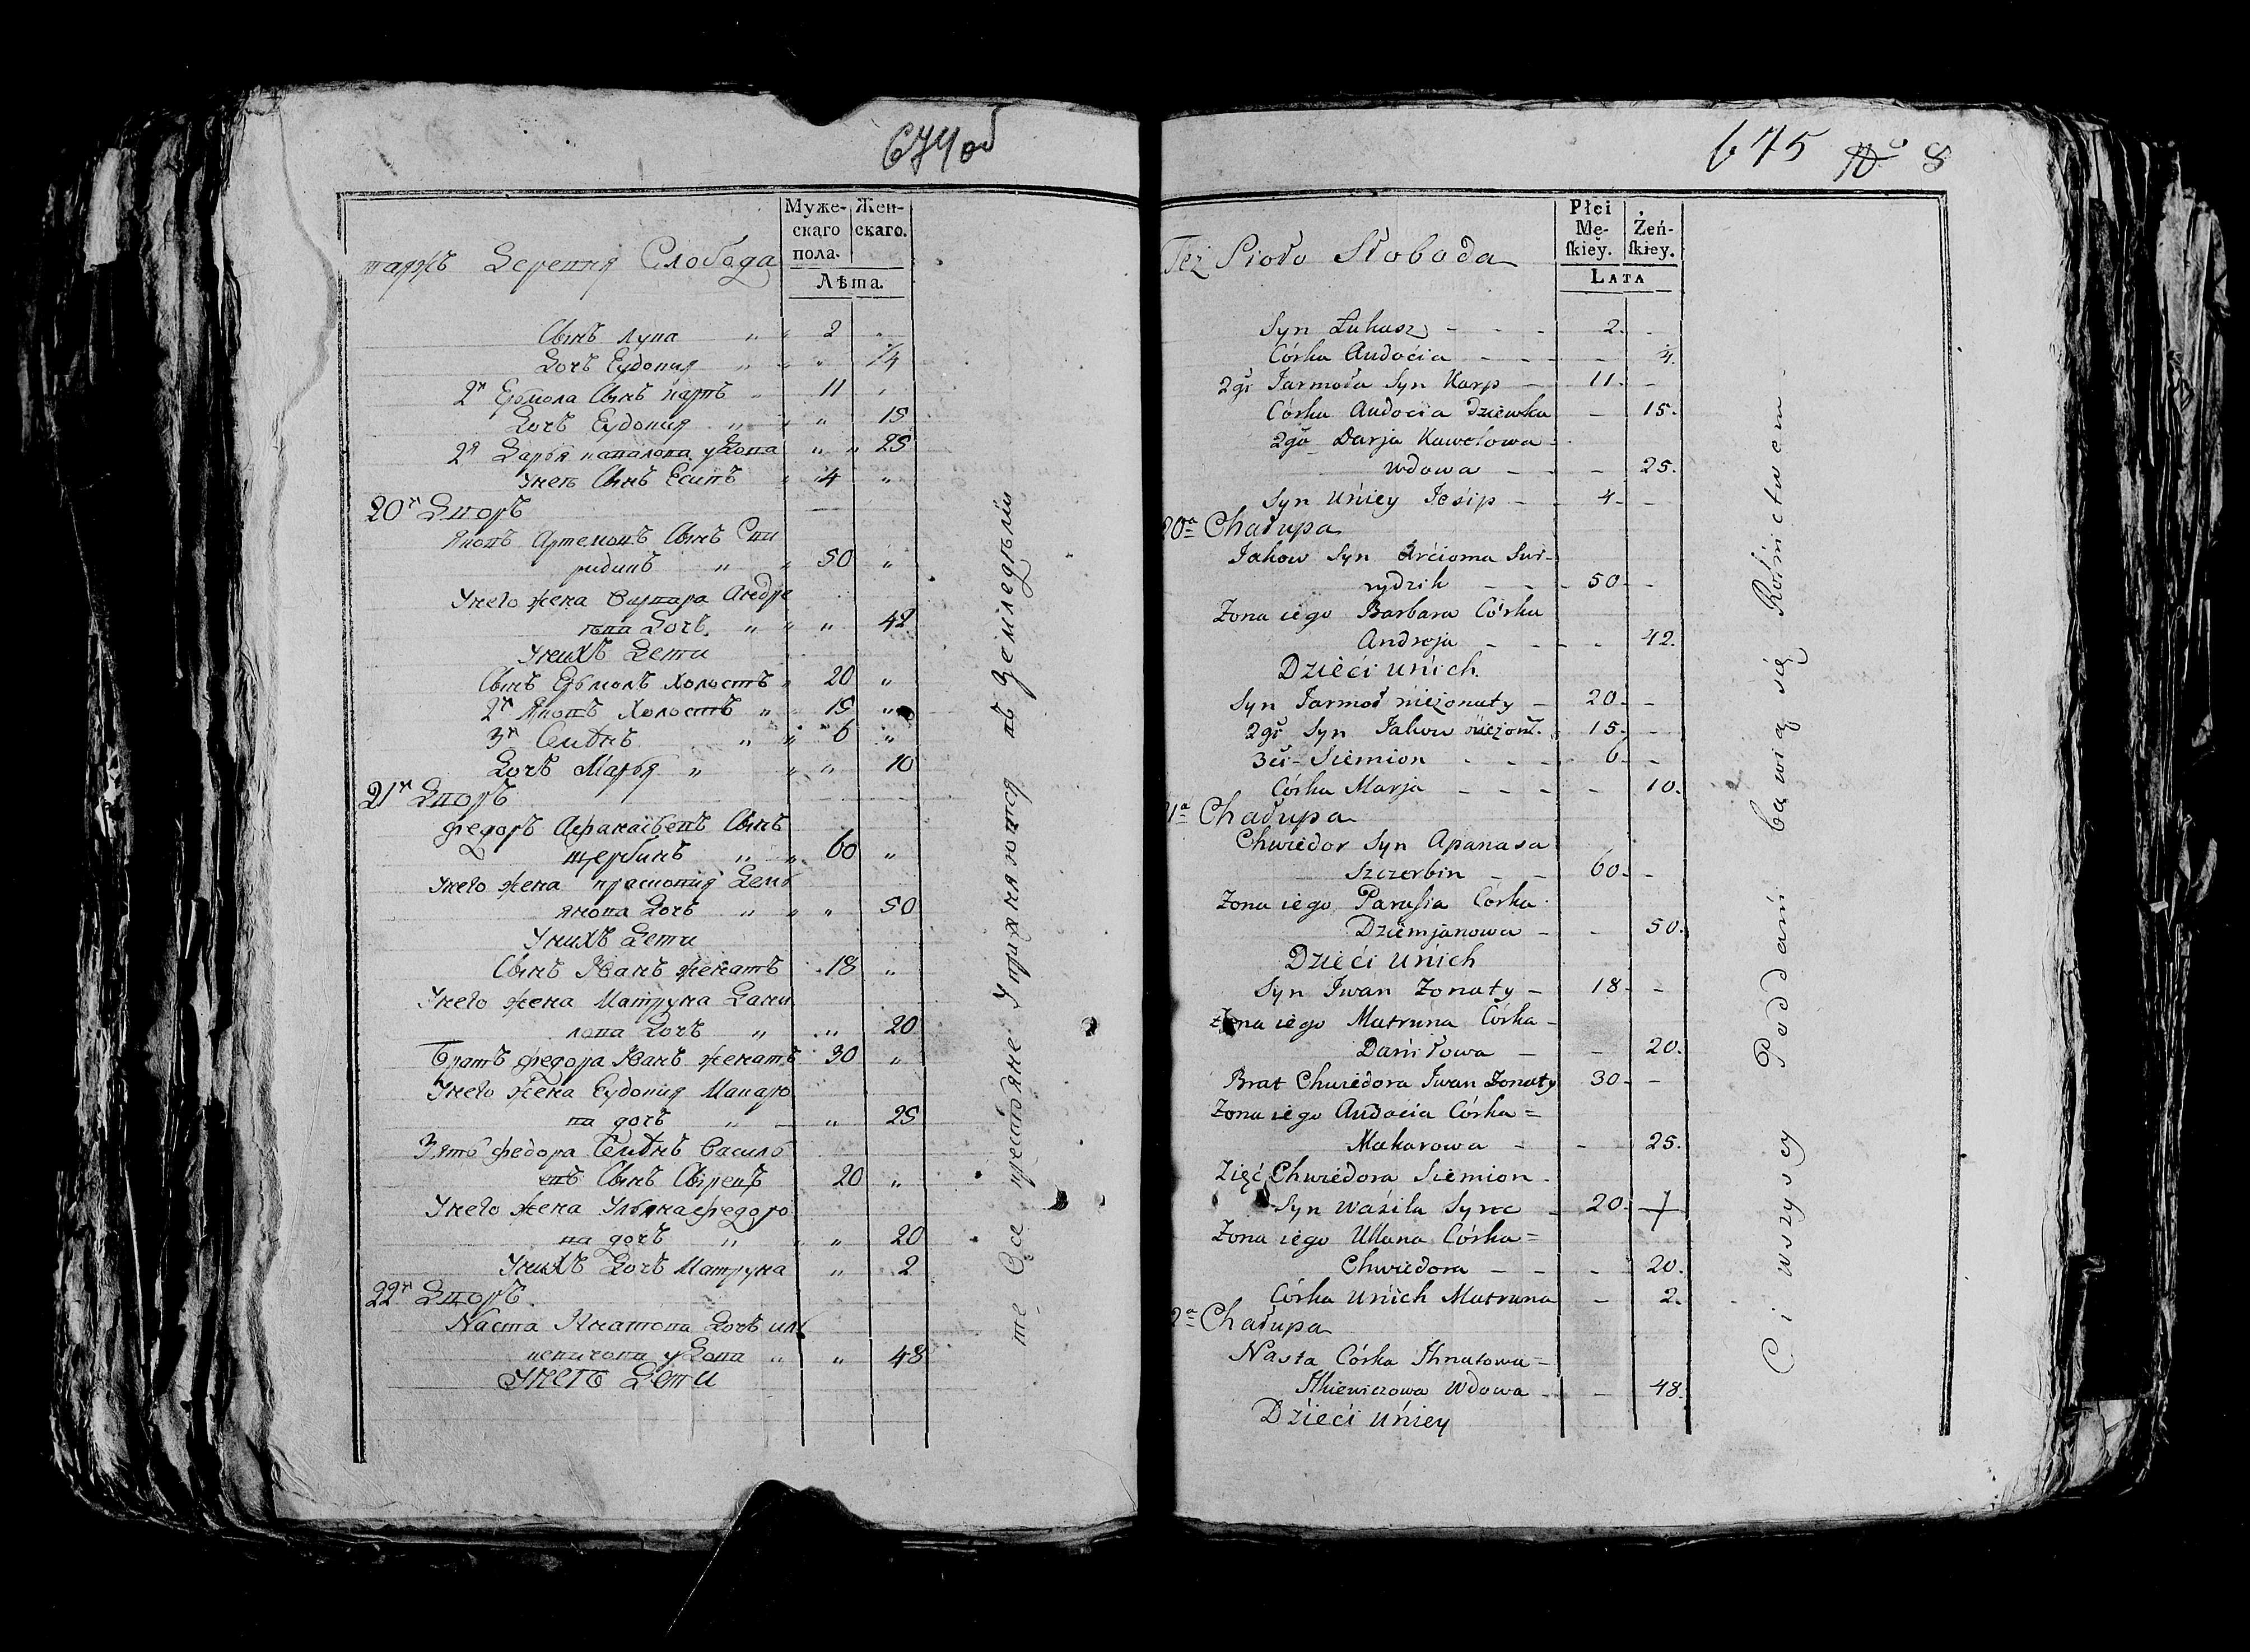 674 об
Муже-
скаго
пола.
Жен-
скаго.
Лѣта.
таяжъ Деревня Слобода
Сынъ лука " " 2 "
Дочь Еудокия " " " 4
2й Ермола Сынъ карпъ " 11 "
Дочь Еудокия " " " 15
2я Дарья кавалова удова " " 25
У неѣ Сынъ Есипъ " 4 "
20й Дворъ
Яковъ Артемовъ Сынъ Сви
ридикъ " " 50 "
У него жена Варвара Андре
ева Дочь " " " 42
У нихъ Дети
Сынъ Ермолъ Холостъ " 20 "
2й Яковъ Холостъ " " 15 "
3й Семѣнъ " " 6 "
Дочь Марья " " " 10
21й Дворъ
Федоръ Афанасьевъ Сынъ
щербинъ " " 60 "
У него жена прасковия Демь
янова Дочь " " " 50
У нихъ Дети
Сынъ Иванъ женатъ 18 "
У него жена Матруна Дани
лова Дочь " " 20
Братъ Федора Иванъ женатъ 30 "
У него жена Еудокия Макаро
ва дочь " " 25
Зять Федора Семѣнъ Василь
евъ Сынъ Сырецъ 20 "
У него жена Ульяна Федоро
ва дочь " " " 20
У нихъ Дочь Матруна " 2
22й Дворъ
Наста Игнатова Дочь иль
кевичова удова " " 48
У неѣ Дети
те Все крестьяне Упражняются въ Земледѣлии
675 No 8
Płci
Mę-
skiey.
Żeń-
skiey.
LATA
Też Sioło Słoboda
Syn Łukasz - - - 2. -
Córka Audocia - - - - 4.
2gi Jarmoła Syn Karp - 11. -
Córka Audocia dziewka - 15.
2ga Darja Kawałowa -
wdowa - - - 25.
Syn uniey Jesip - - 4. -
20a Chałupa
Jakow Syn Arcioma Swi-
rydzik - - - 50. -
Żona iego Barbara Córka
Andreja - - - - 42.
Dzieci unich.
Syn Jarmoł nieżonaty - 20. -
2gi Syn Jakow nieżont. - 15. -
3ci - Siemion - - - 6. -
Córka Marja - - - - 10.
1a Chałupa
Chwiedor Syn Apanasa
Szczerbin - - 60. -
Żona iego Parasia Córka
Dziemjanowa - - 50.
Dzieci unich
Syn Iwan Żonaty - 18. -
Żona iego Matruna Córka -
Daniłowa - - 20.
Brat Chwiedora Iwan Żonaty 30. -
Żona iego Audocia Córka =
Makarowa - - 25.
Zięć Chwiedora Siemion -
Syn Wasila Syrec - 20. -
Żona iego Ullana Córka =
Chwiedora - - - 20.
Córka unich Matruna - 2.
2a Chałupa
Nasta Córka Ihnatowa =
Ilkiewiczowa Wdowa - - 48.
Dzieci uniey
Ci wszyscy Poddani bawią się Rolnictwem